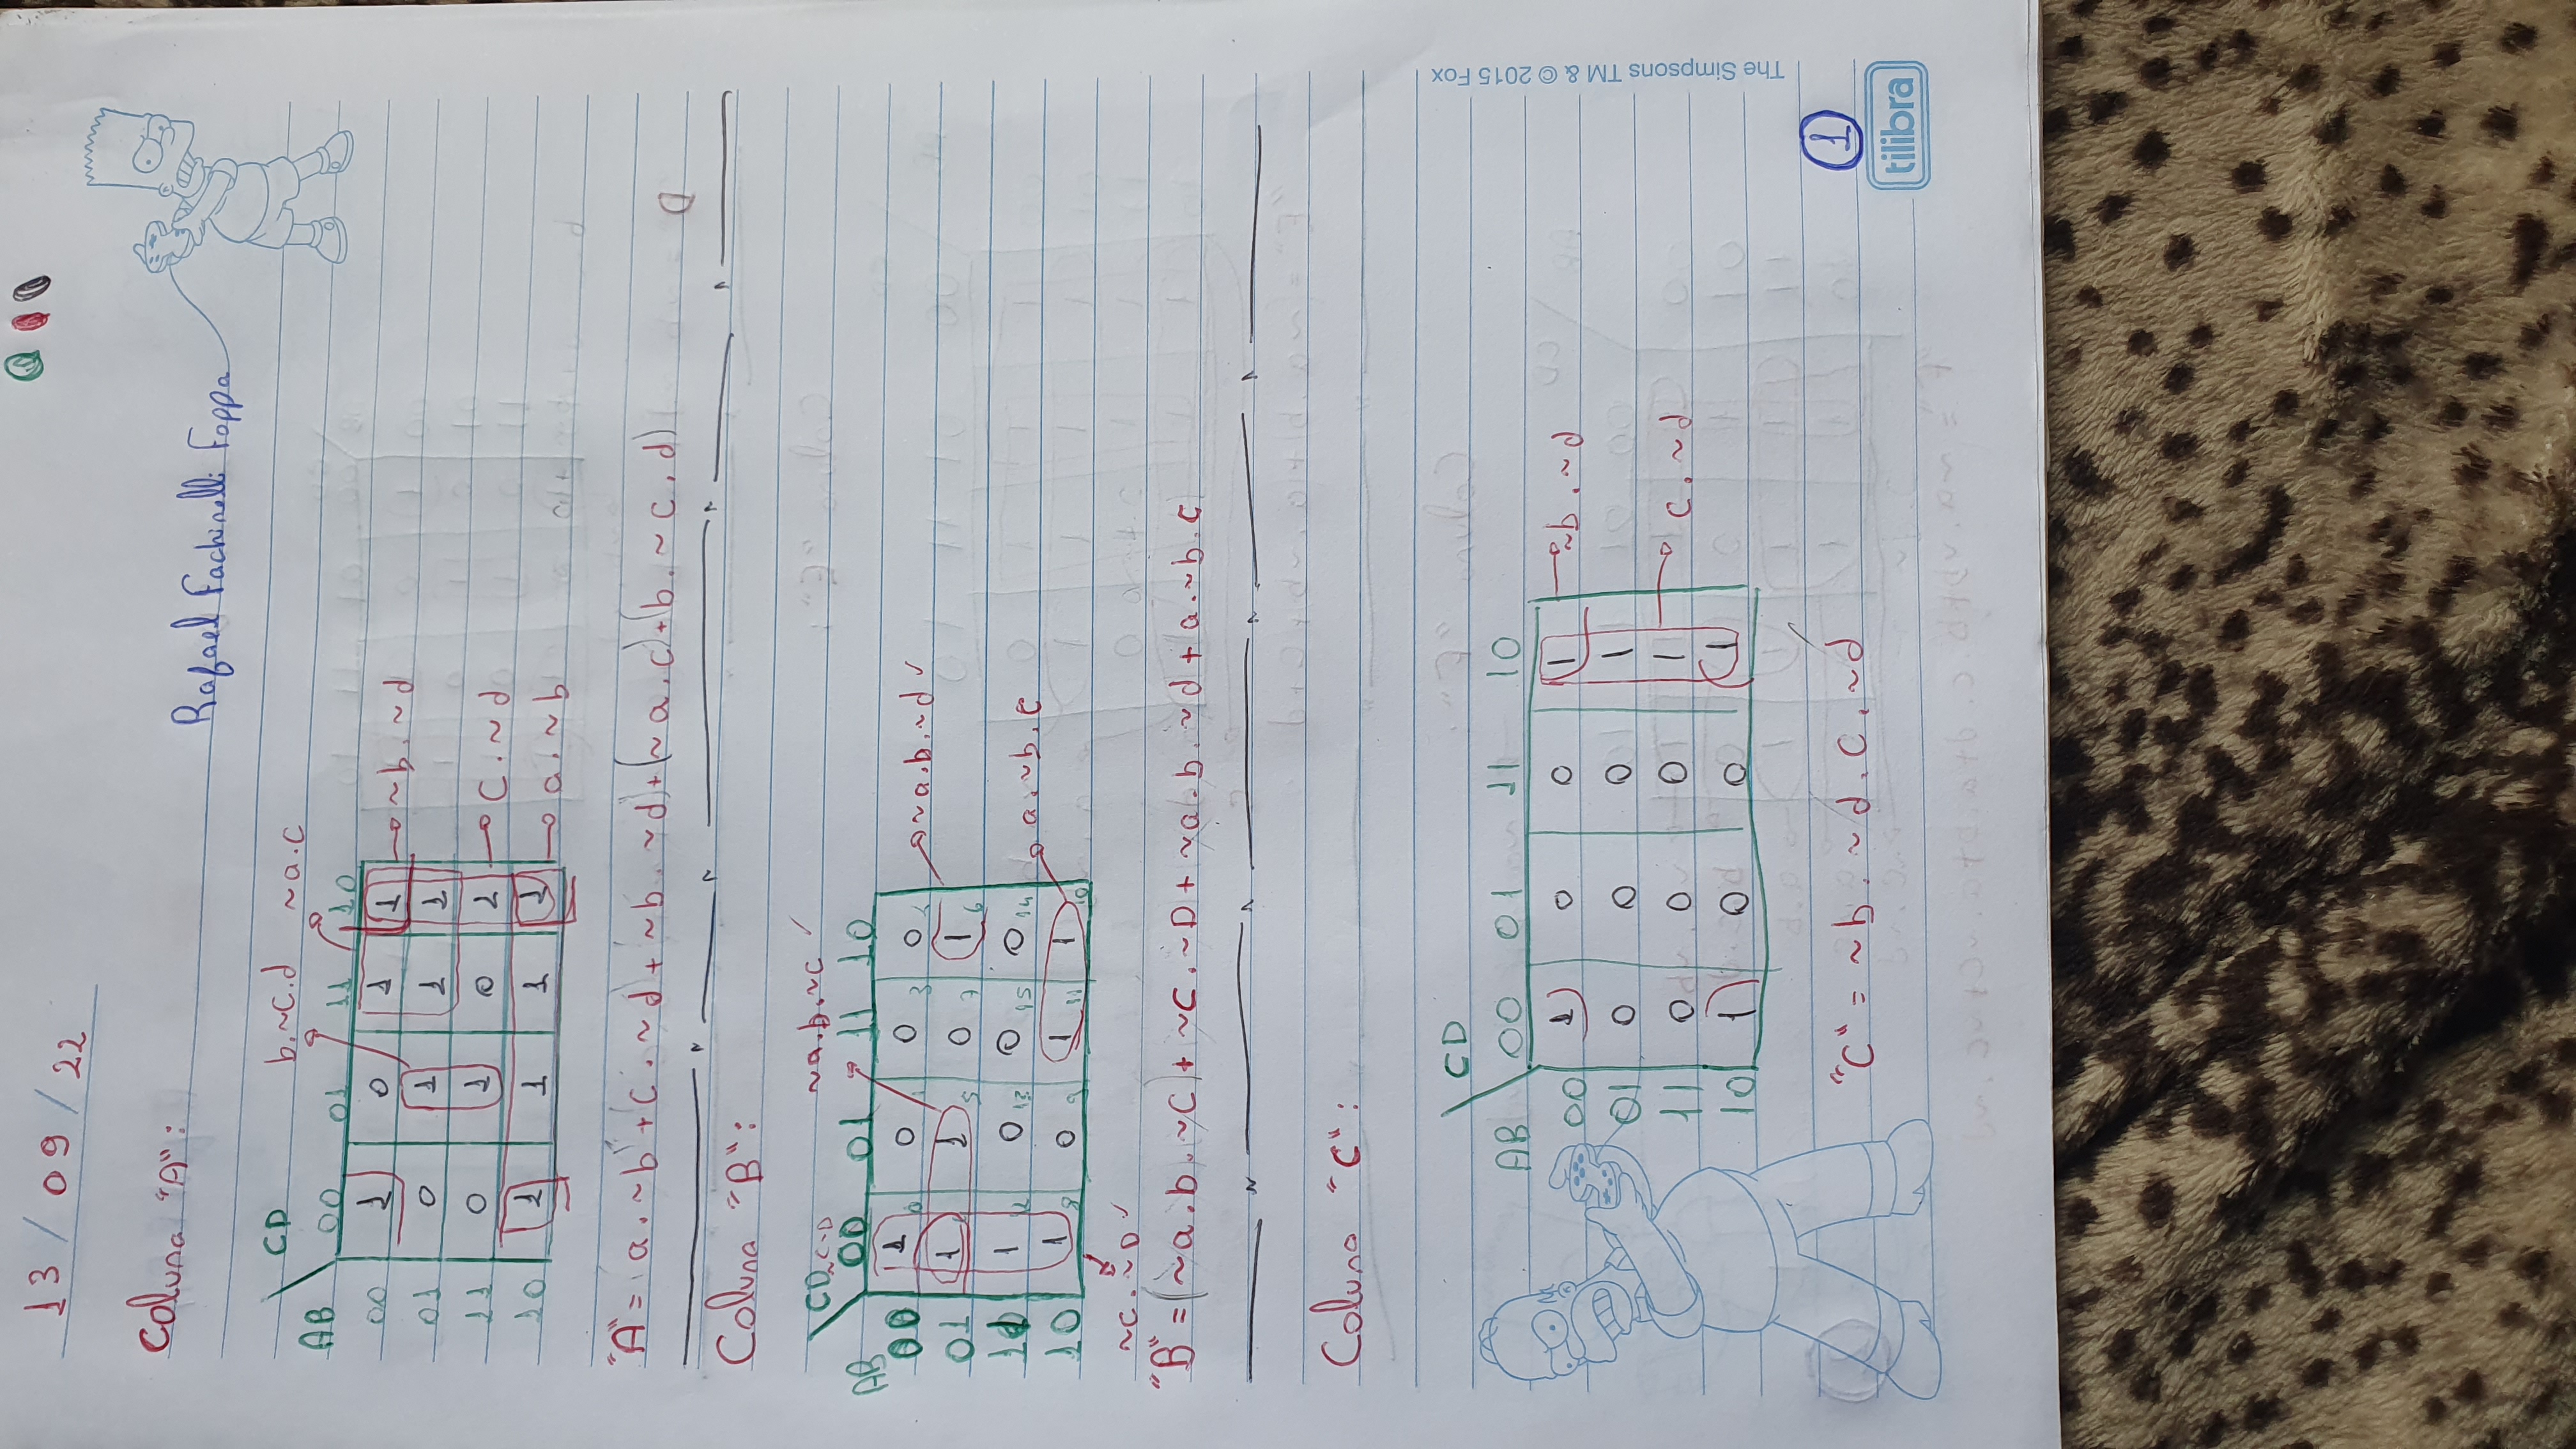 13 / 09 / 22
Rafael Fachinelli Foppa
Coluna "A":
b.~c.d ~a.c
CD
AB 00 01 11 10
00 1 0 1 1 ~b.~d
01 0 1 1 1
11 0 1 0 1 c.~d
10 1 1 1 1 a.~b
"A" = (a.~b)+(c.~d)+(~b.~d)+(~a.c)+(b.~c.d)
D
Coluna "B":
~a.b.~c ✓
CD ~C~D
AB 00 01 11 10
00 1 0 0 0
01 1 1 0 1 ~a.b.~d ✓
11 1 0 0 0
10 1 0 1 1 a.~b.c
~c.~D ✓
"B" = (~a.b.~C)+~C.~D+~a.b.~d+a.~b.c
Coluna "C":
CD
AB 00 01 11 10
00 1 0 0 1 ~b.~d
01 0 0 0 1
11 0 0 0 1 c.~d
10 1 0 0 1
"C" = ~b.~d.C.~d
1
The Simpsons TM & © 2015 Fox
tilibra